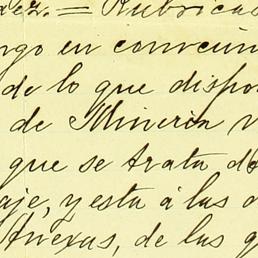 dez. = Rubricas
ngo en convenn
de lo que dispo
de Mineria v
que se trata de
aje, y esta á las
Anexas, de las q